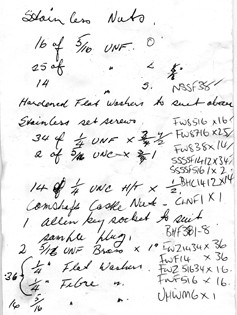 Stainless Nuts.
16 of 5/16 UNF.
25 of " 
14 " 5. NSSF38
Hardened Flat Washers to suit above
Stainless set screws. FW8516 × 16
34 of 1/4 UNF × 3/4 FW8716 × 25
2 of 5/16 UNC × 1 FW838 × 14
SSSSF1412 × 34
SSSSF5161 × 2
14 of 1/4 UNC H/F × 1/2 BHC1412 × 14
Camshaft Castle Nut - CLNF1 × 1
1 allen key socket to suit
sample plug. BHF381-8
2 5/16 UNF Brass × 1" FWZ1434 × 36
36 1/4 Flat Washers. IWF14 × 36
1/4 Fibre " FWZ51634 × 16
16 5/16 " " FWF516 × 16
UHWM6 × 1